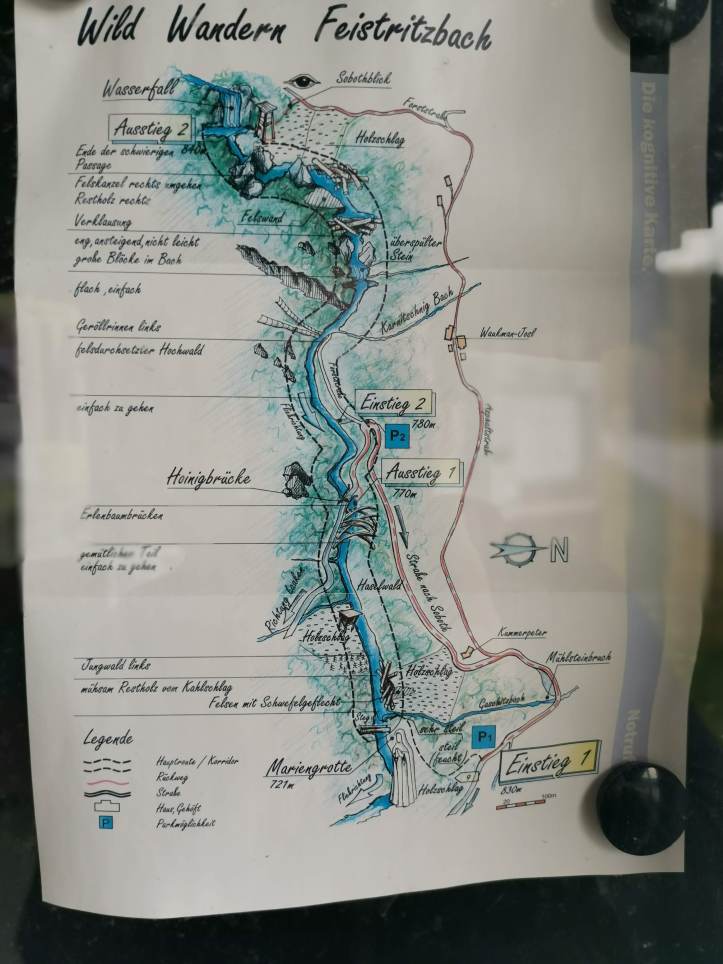 Wild Wandern Feistritzbach
Wasserfall
Sobothblick
Forststraße
Ausstieg 2
840m
Holzschlag
Ende der schwierigen
Passage
Felskanzel rechts umgehen
Restholz rechts
Felswand
Verklausung
eng, ansteigend, nicht leicht
große Blöcke im Bach
überspülter
Stein
flach, einfach
Karntschnig Bach
Geröllrinnen links
felsdurchsetzter Hochwald
Waukman-Josl
Forststraße
einfach zu gehen
Flußrichtung
Einstieg 2
780m
P2
Asphaltstraße
Ausstieg 1
770m
Hoinigbrücke
Erlenbaumbrücken
N
gemütlicher Teil
einfach zu gehen
Straße nach Soboth
Haselwald
Holzschlag
Kummerpeter
Mühlsteinbruch
Jungwald links
Holzschlag
mühsam Restholz vom Kahlschlag
Felsen mit Schwefelgeflecht
Steg
sehr steil
steil
(feucht)
P1
Legende
Hauptroute / Korridor
Rückweg
Straße
Haus, Gehöft
P
Parkmöglichkeit
Mariengrotte
721m
Flußrichtung
Holzschlag
Einstieg 1
830m
20
100m
Die kognitive Karte.
Notru